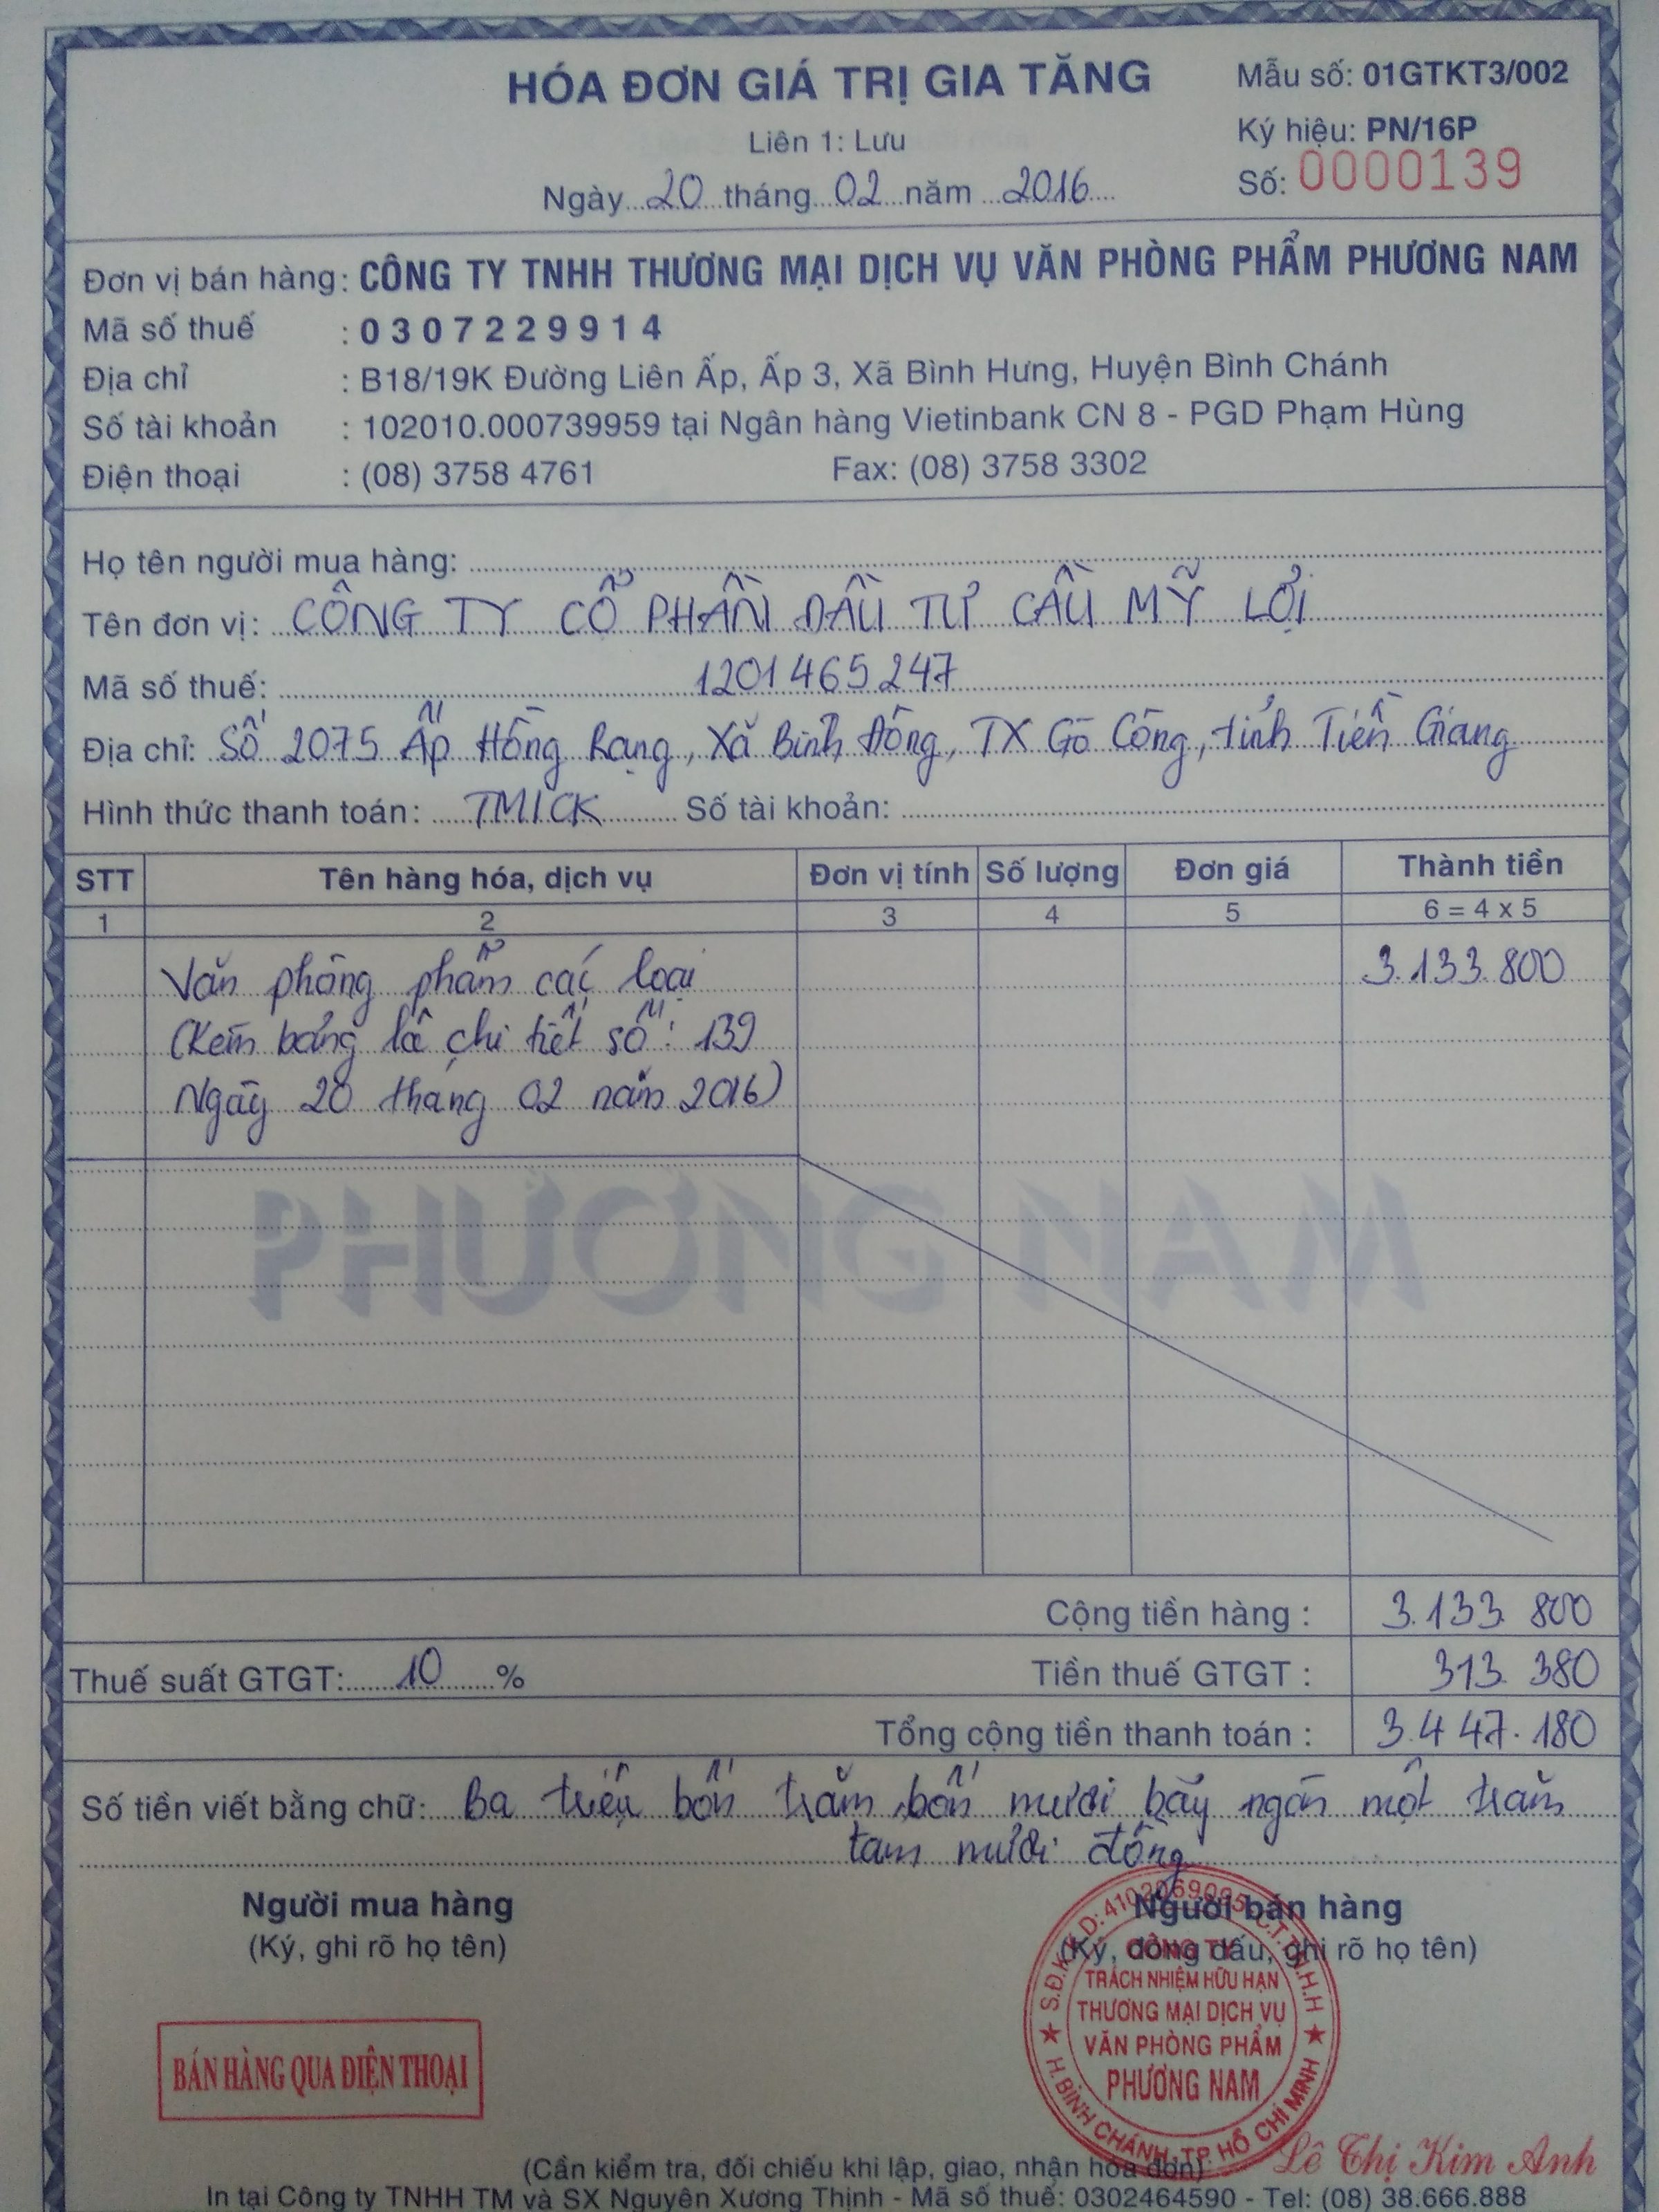 HÓA ĐƠN GIÁ TRỊ GIA TĂNG
Mẫu số: 01GTKT3/002
Liên 1: Lưu
Ký hiệu: PN/16P
Ngày 20 tháng 02 năm 2016
Số: 0000139
Đơn vị bán hàng: CÔNG TY TNHH THƯƠNG MẠI DỊCH VỤ VĂN PHÒNG PHẨM PHƯƠNG NAM
Mã số thuế : 0307229914
Địa chỉ : B18/19K Đường Liên Ấp, Ấp 3, Xã Bình Hưng, Huyện Bình Chánh
Số tài khoản : 102010.000739959 tại Ngân hàng Vietinbank CN 8 - PGD Phạm Hùng
Điện thoại : (08) 3758 4761 Fax: (08) 3758 3302
Họ tên người mua hàng:
Tên đơn vị: CÔNG TY CỔ PHẦN ĐẦU TƯ CẦU MỸ LỢI
Mã số thuế: 1201465247
Địa chỉ: Số 2075 Ấp Hồng Rạng, Xã Bình Đông, TX Gò Công, tỉnh Tiền Giang
Hình thức thanh toán: TM/CK Số tài khoản:
STT Tên hàng hóa, dịch vụ Đơn vị tính Số lượng Đơn giá Thành tiền
1 2 3 4 5 6 = 4 x 5
Văn phòng phẩm các loại 3.133.800
(Kèm bảng kê chi tiết số: 139
Ngày 20 tháng 02 năm 2016)
PHƯƠNG NAM
Cộng tiền hàng : 3.133.800
Thuế suất GTGT: 10 % Tiền thuế GTGT : 313.380
Tổng cộng tiền thanh toán : 3.447.180
Số tiền viết bằng chữ: Ba triệu bốn trăm bốn mươi bảy ngàn một trăm
tám mươi đồng
Người mua hàng Người bán hàng
(Ký, ghi rõ họ tên) (Ký, đóng dấu, ghi rõ họ tên)
S.Đ.K.K.D: 4102069095 - C.T.T.N.H.H
CÔNG TY
TRÁCH NHIỆM HỮU HẠN
THƯƠNG MẠI DỊCH VỤ
VĂN PHÒNG PHẨM
PHƯƠNG NAM
H.BÌNH CHÁNH-TP HỒ CHÍ MINH
BÁN HÀNG QUA ĐIỆN THOẠI
Lê Thị Kim Anh
(Cần kiểm tra, đối chiếu khi lập, giao, nhận hóa đơn)
In tại Công ty TNHH TM và SX Nguyên Xương Thịnh - Mã số thuế: 0302464590 - Tel: (08) 38.666.888